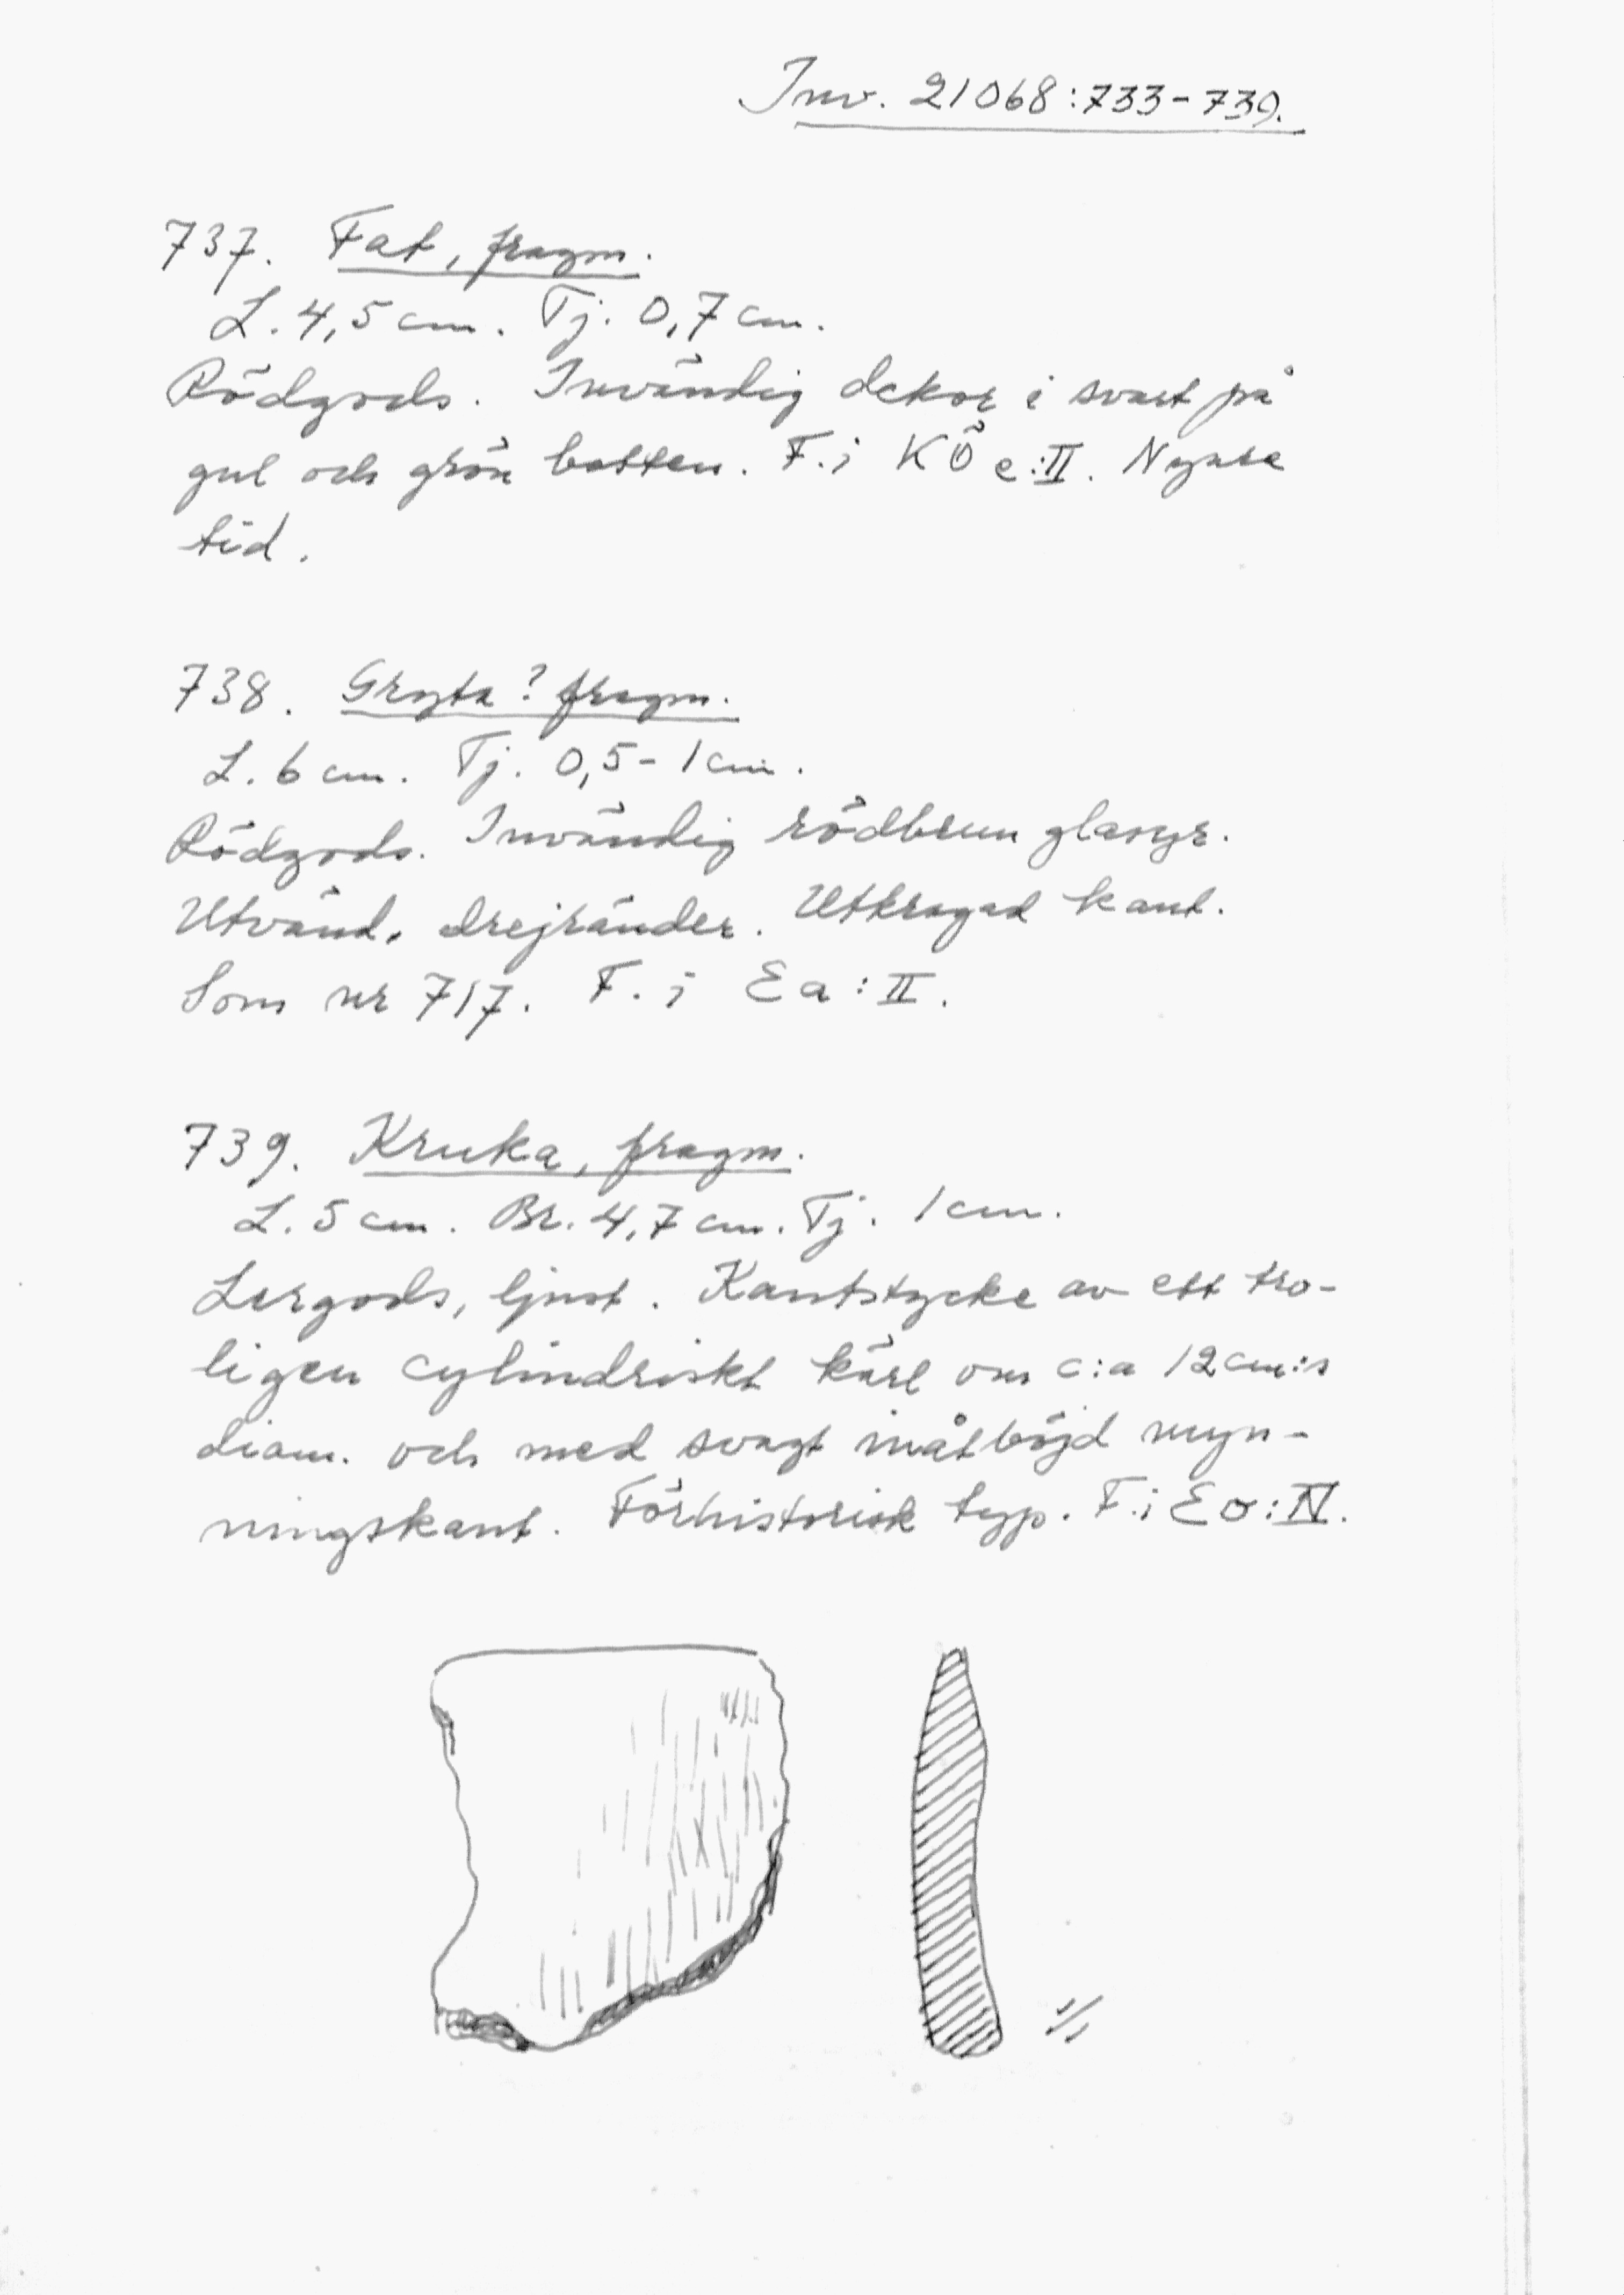 Inv. 21068:733-739.
737. Fat, fragm.
L. 4,5 cm. Tj. 0,7 cm.
Rödgods. Invändig dekor i svart på
gul och grön botten. F. i KÖ e:II. Nyare
tid.
738. Gryta? fragm.
L. 6 cm. Tj. 0,5-1 cm.
Rödgods. Invändig rödbrun glasyr.
Utvänd. drejränder. Utkragad kant.
Som nr 717. F. i Ea:II.
739. Kruka, fragm.
L. 5 cm. Br. 4,7 cm. Tj. 1 cm.
Lergods, ljust. Kantstycke av ett tro-
ligen cylindriskt kärl om c:a 12 cm:s
diam. och med svagt inåtböjd myn-
ningskant. Förhistorisk typ. F. i Eo:IV.
1/1